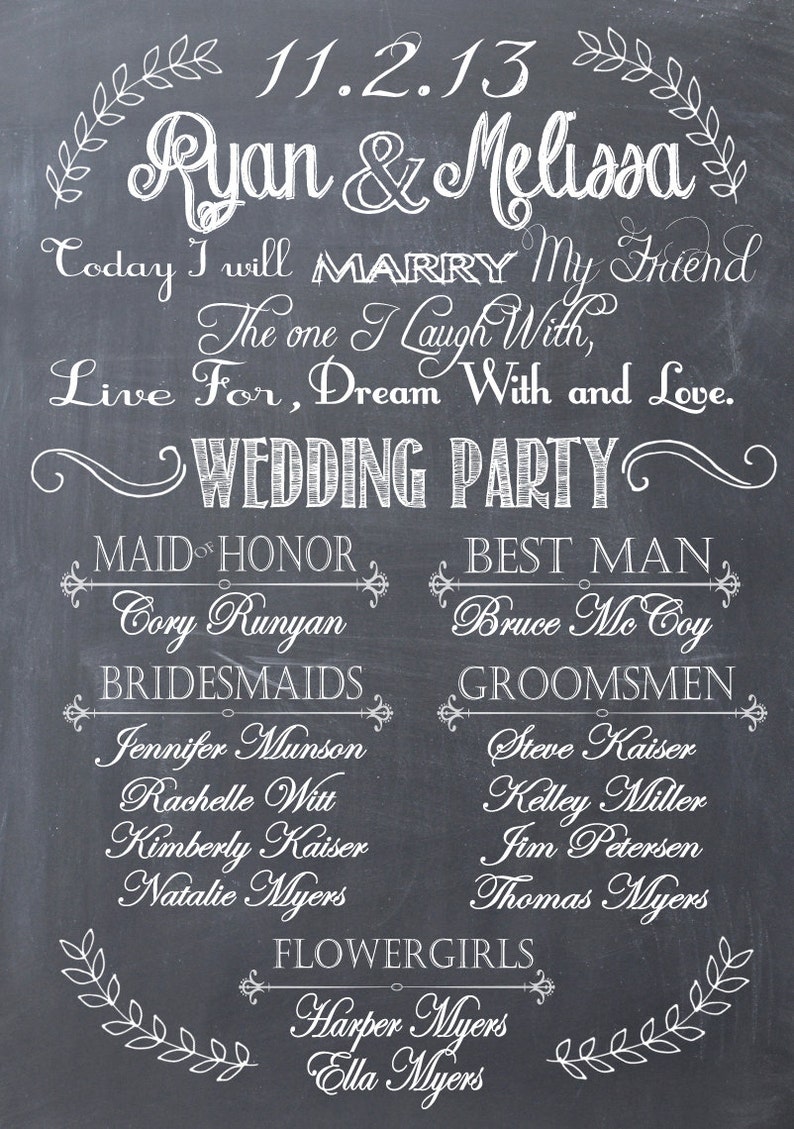 11.2.13
Ryan & Melissa
Today I will MARRY My Friend
The one I Laugh With,
Live For, Dream With and Love.
WEDDING PARTY
MAID OF HONOR
Cory Runyan
BEST MAN
Bruce McCoy
BRIDESMAIDS
Jennifer Munson
Rachelle Witt
Kimberly Kaiser
Natalie Myers
GROOMSMEN
Steve Kaiser
Kelley Miller
Jim Petersen
Thomas Myers
FLOWERGIRLS
Harper Myers
Ella Myers